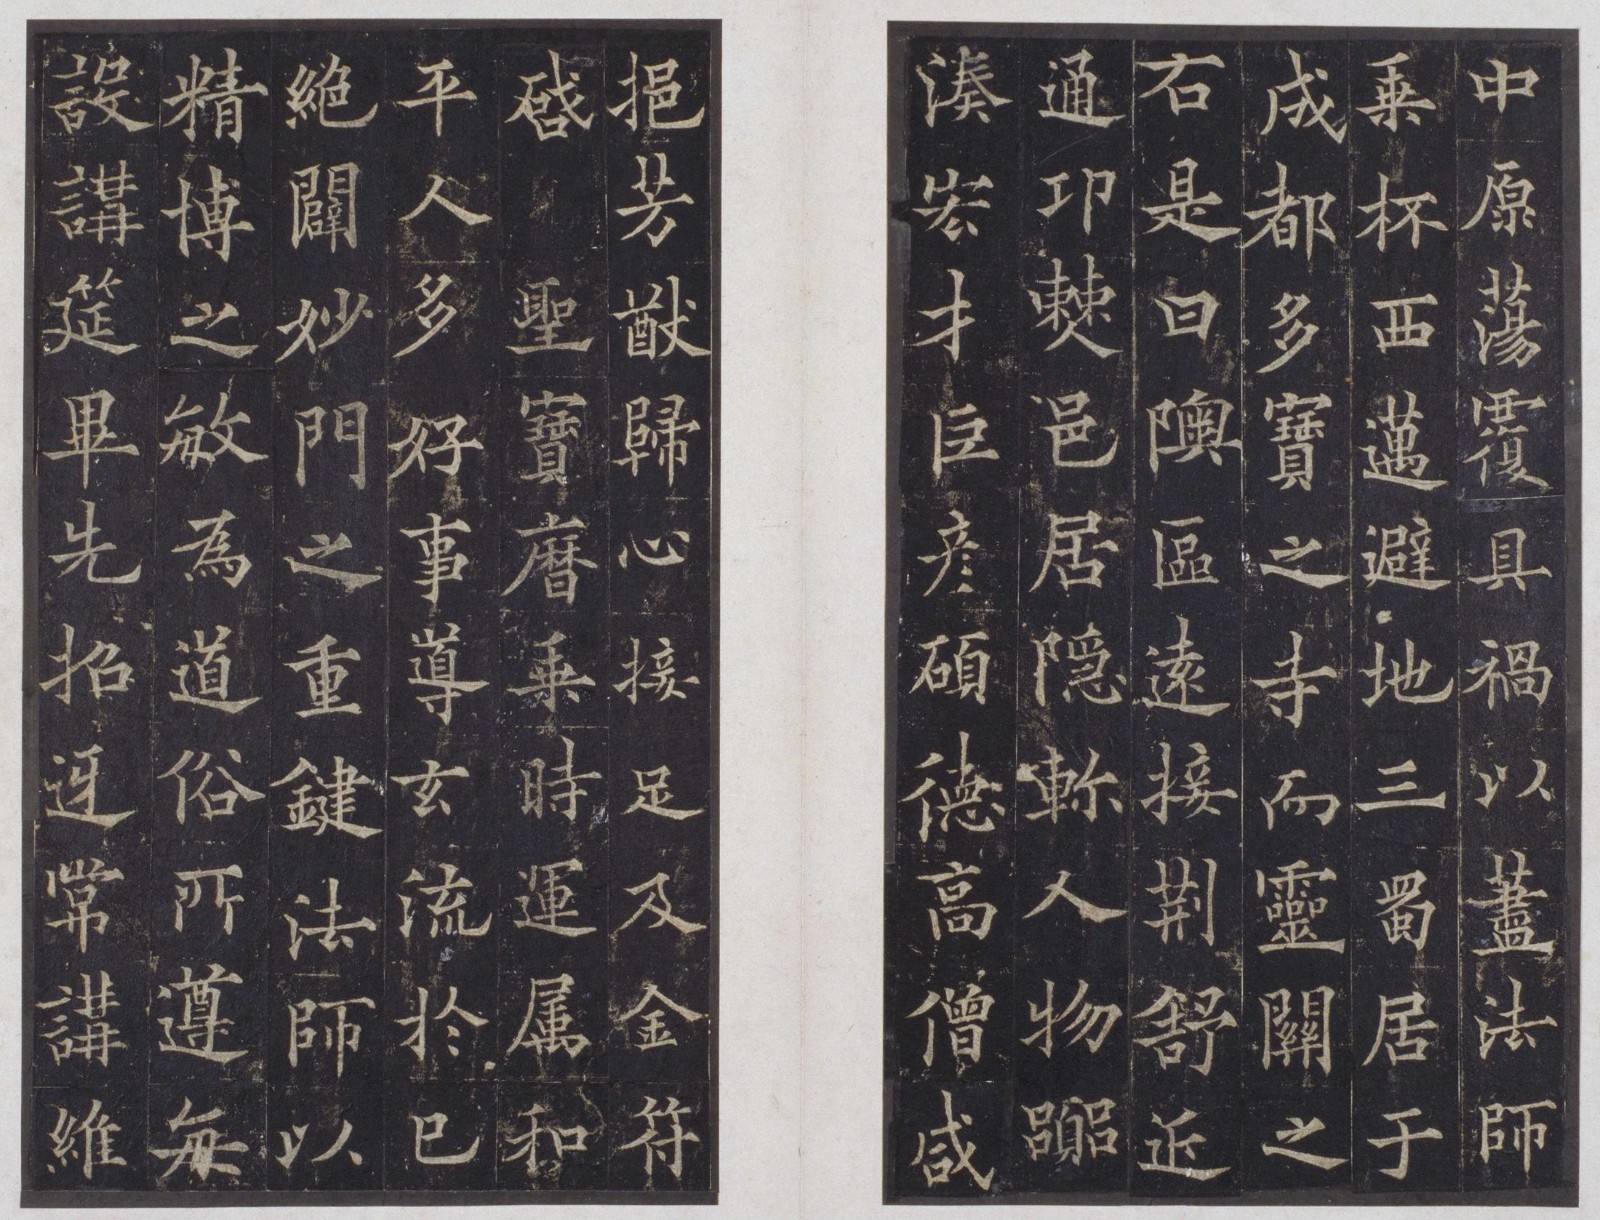 中原蕩覆具禍以藎法師
乗杯西邁避地三蜀居于
成都多寶之寺而靈關之
右是曰隩區遠接荆舒近
通卭僰邑居隱軫人物躢
湊宏才巨彦碩德高僧咸
挹芳猷歸心接足及金符
啓聖寶暦乗時運属和
平人多好事導玄流於已
絶闢妙門之重鍵法師以
精博之敏為道俗所遵每
設講筵畢先招迓常講維